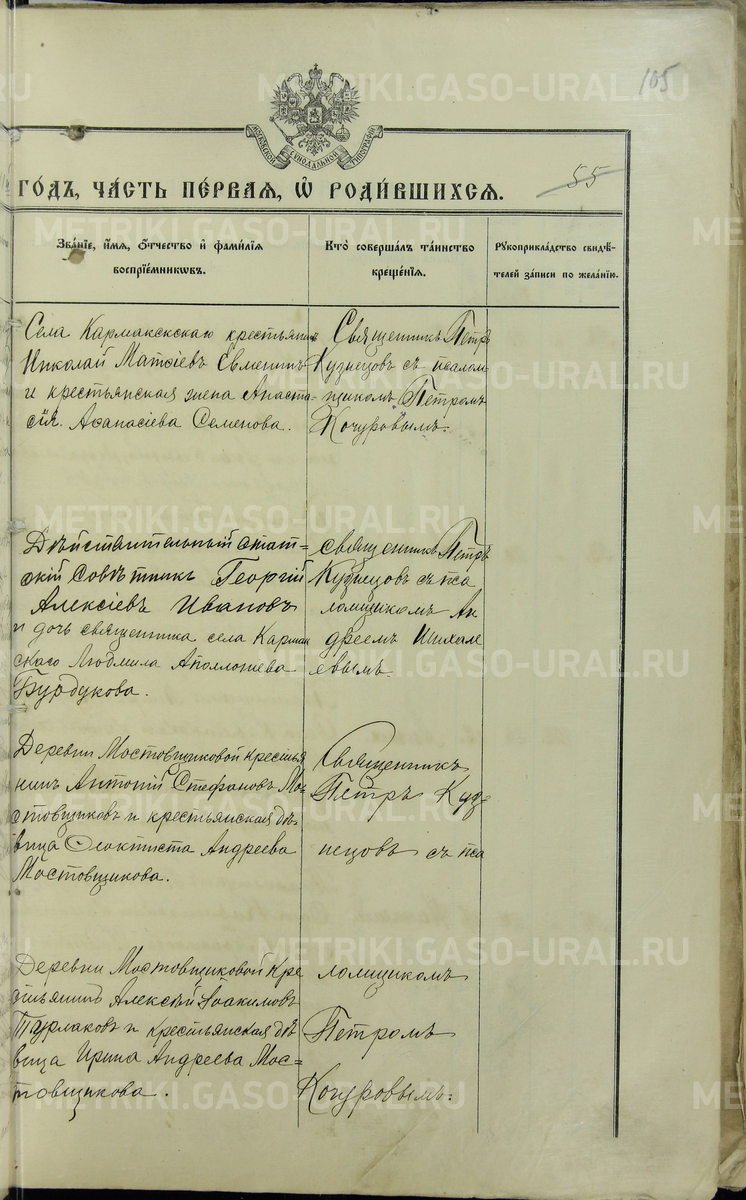 105
МОСКОВСКОЙ СѴНОДАЛЬНОЙ ТИПОГРАФІИ
ГО́ДЪ, ЧА́СТЬ ПЕ́РВАЯ, Ѽ РОДИ́ВШИХСЯ.
55
Зва́нїе, и́мя, о́тчество и҆ фами́лїя
воспрїе́мниковъ.
Кто̀ соверша́лъ та́инство
креще́нїя.
Рꙋкоприкла́дство свидѣ́-
телей за́писи по жела́нїю.
Села Кармакскаго крестьянинъ
Николай Матѳіевъ Евменинъ
и крестьянская жена Анаста-
сія Аѳанасіева Семенова.
Священникъ Петръ
Кузнецовъ съ псалом
щикомъ Петромъ
Кочуровымъ.
Дѣйствительный стат=
скій совѣтникъ Георгій
Алексіевъ Ивановъ
и дочь священника села Кармак
скаго Людмила Аполлонiева
Бурдукова.
священникъ Петръ
Кузнецовъ съ пса
ломщикомъ Ан
дреемъ
евымъ.
Деревни Мостовщиковой кресть
нинъ Антоній Стефановъ Мо
стовщиковъ и крестьянская дѣ
вица Ѳеоктиста Андреева
Мостовщикова.
Священникъ
Петръ Куз
нецовъ съ пса
Деревни Мостовщиковой кре
стьянинъ Алексѣй Іоакимовъ
Турлаковъ и крестьянская дѣ
вица Ирина Андреева Мос=
товщикова.
ломщикомъ
Петромъ
Кочуровымъ.
METRIKI.GASO-URAL.RU